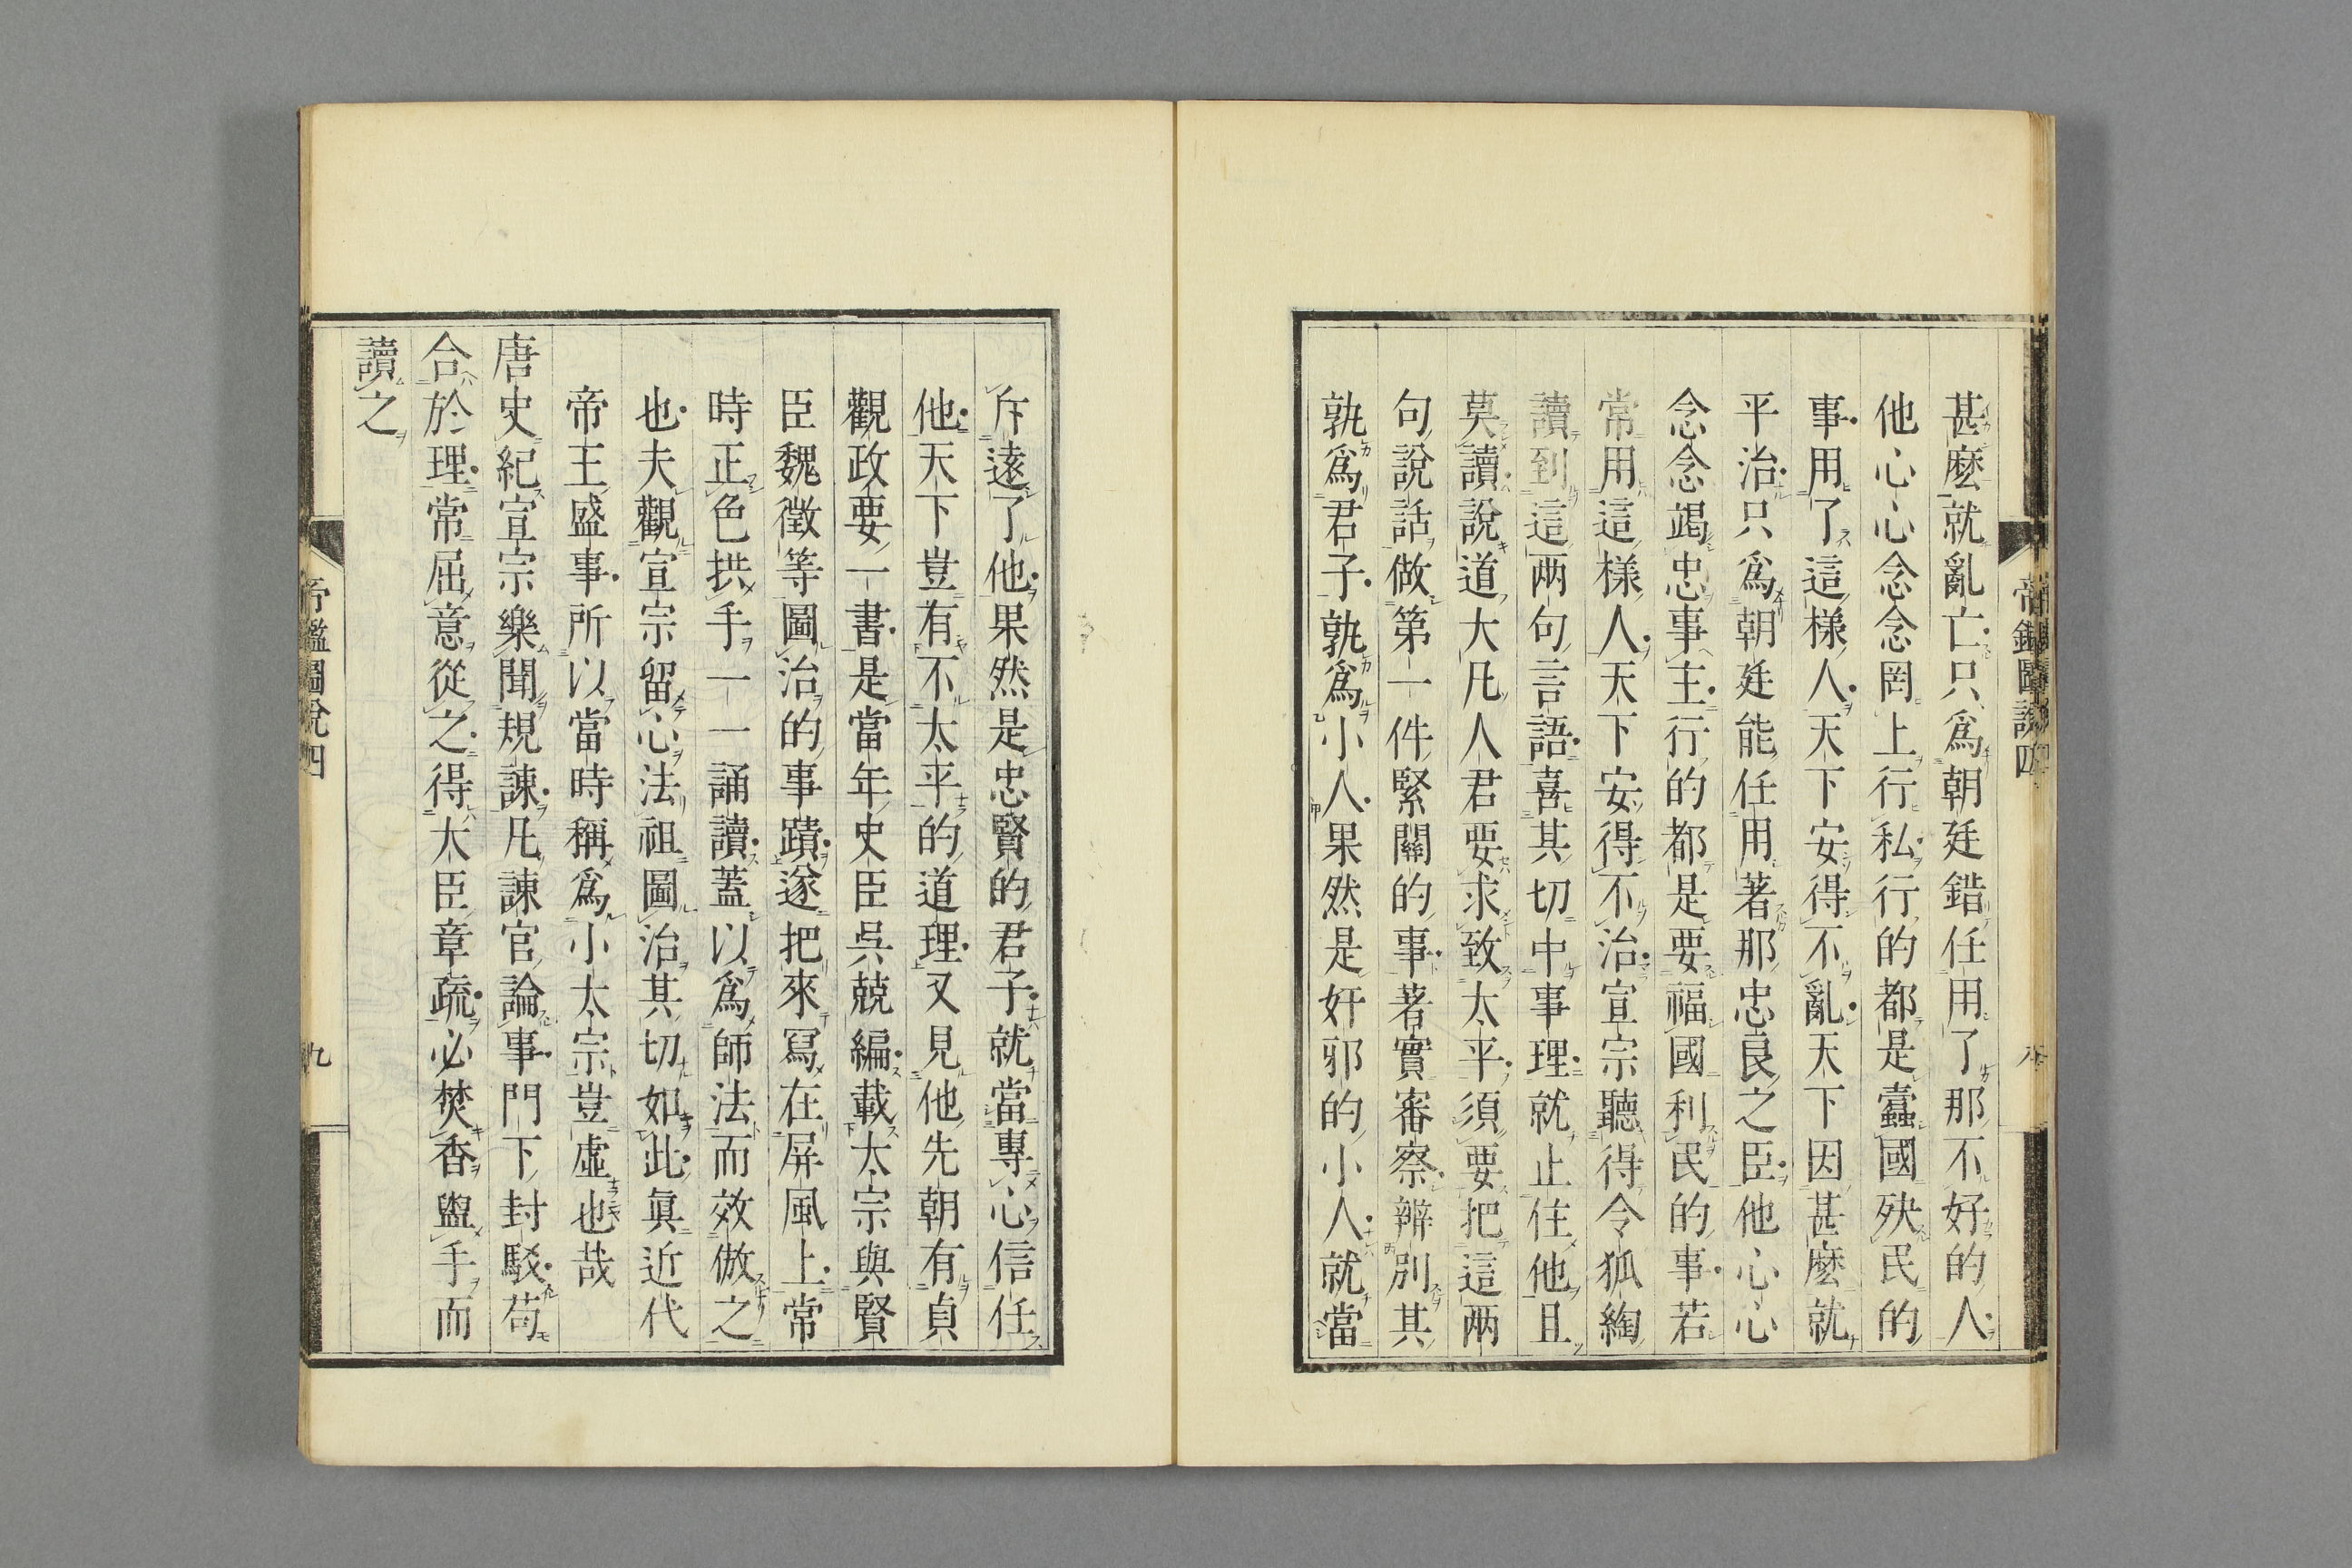 甚麽就亂亡只爲朝廷錯任用了那不好的人
他心心念念罔上行私行的都是蠹國殃民的
事用了這樣人天下安得不亂天下因甚麽就
平治只爲朝廷能任用著那忠良之臣他心心
念念竭忠事主行的都是要福國利民的事若
常用這樣人天下安得不治宣宗聽得令狐綯
讀到這兩句言語喜其切中事理就止住他且
莫讀說道大凡人君要求致太平須要把這兩
句說話做第一件緊關的事著實審察辨別其
孰爲君子孰爲小人果然是奸邪的小人就當
帝鑑圖說四
八
斥遠了他果然是忠賢的君子就當專心信任
他天下豈有不太平的道理又見他先朝有貞
觀政要一書是當年史臣吳兢編載太宗與賢
臣魏徵等圖治的事蹟遂把來寫在屏風上常
時正色拱手一一誦讀蓋以爲師法而效倣之
也夫觀宣宗留心法祖圖治其切如此眞近代
帝王盛事所以當時稱爲小太宗豈虛也哉
唐史紀宣宗樂聞規諫凡諫官論事門下封駁苟
合於理常屈意從之得大臣章疏必焚香盥手而
讀之
帝鑑圖說四
九